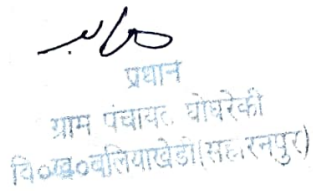 प्रधान
ग्राम पंचायत घोघरेकी
वि०ख०बलियाखेडी(सहारनपुर)